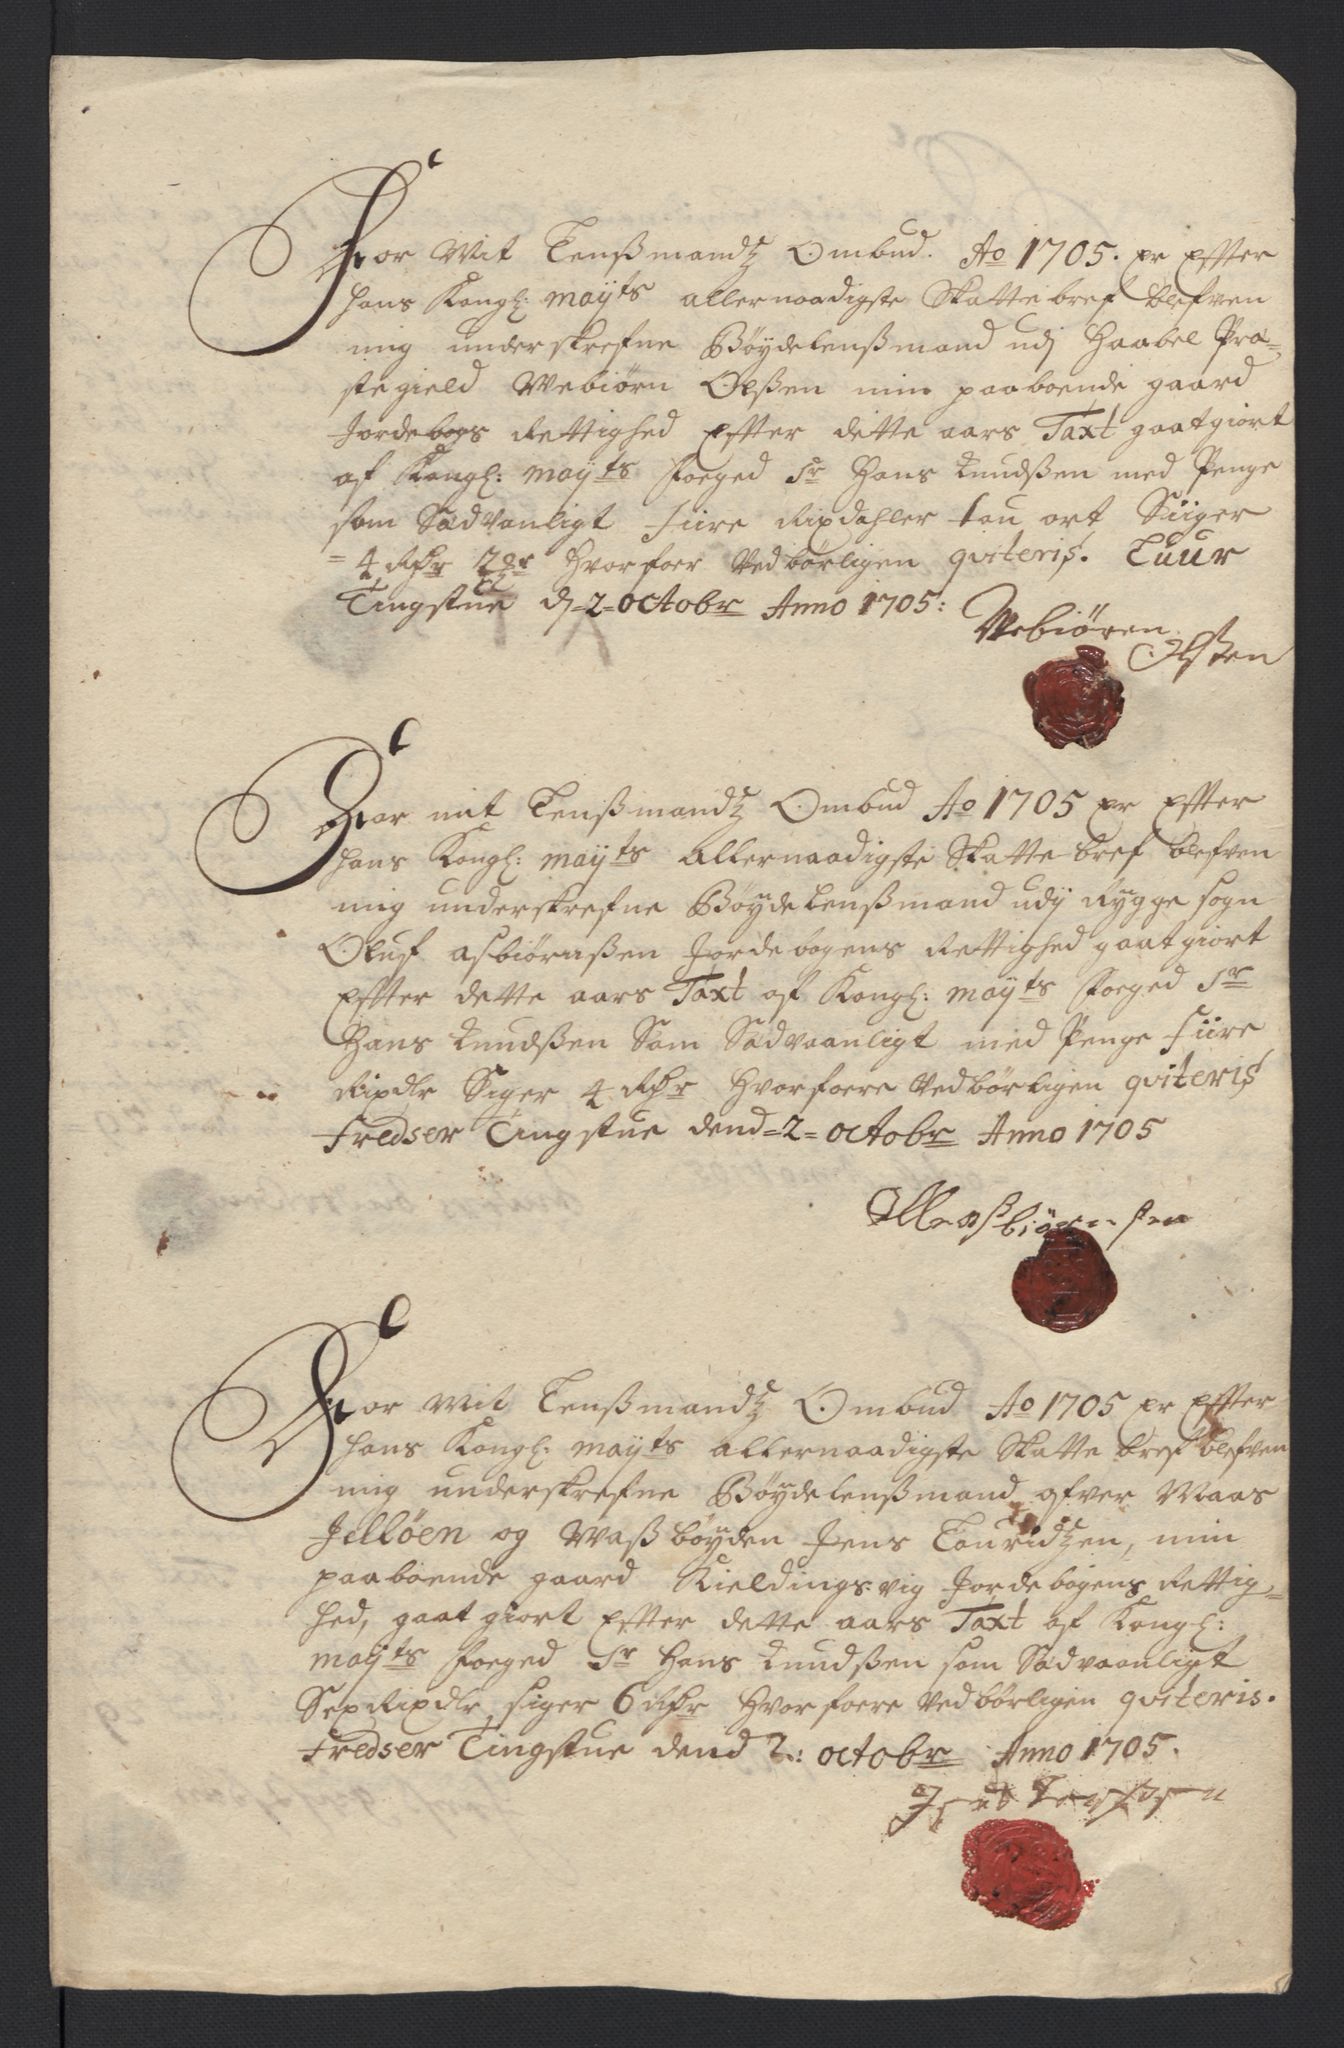 For Mit Lenßmandtz Ombud. Ao 1705. er Effter
hans Kongl: mayts allernaadigste Skatte bref blefven
mig underskrefne Böÿdelenßmand udj Haabel Præ=
stegield Webiörn Olßen min paaboende gaard
Jordebogs Rettighed Effter dette aars Taxt gaatgiort
af Kongl: mayts Foeged Sr Hans Knudßen med Penge
som Sædvanligt Fiire Rixdahler tou ort Siiger
= 4 Rdr 2 ort Hvorfoer Vedbörligen qviteris. Tuur
Tingstue d: 2 octobr Anno 1705:
Webiören
Olßen
For mit Lenßmandtz Ombud Ao 1705 er Efter
hans Kongl: mayts allernaadigste Skatte bref blefven
mig underskrefne Böÿdelenßmand udÿ Rygge sogn
Oluf asbiörnßen Jordebogens Rettighed gaatgiort
Effter dette aars Taxt af Kongl: mayts Foeged Sr
Hans Knudßen Som Sædvaanligt med Penge Fiire
Rixdlr Siger 4 Rdr Hvorfoere Vedbörligen qviteris
Fredser Tingstue dend = 2 = octobr Anno 1705
Olle asbiörnsen
For Mit Lenßmandtz Ombud Ao 1705 er Effter
hans Kongl: mayts allernaadigste Skatte bref blefven
mig underskrefne Böÿdelenßmand ofver Maas
Jellöen og Waßböÿden Jens Lauridtzen, min
paaboende gaard Kieldings:vig Jordebogens Rettig=
hed, gaatgiort Effter dette aars Taxt af Kongl:
mayts Foeged Sr Hans Knudßen som Sædvaanligt
Sex Rixdlr, siger 6 Rdr Hvorfoere Vedbörligen qviteris.
Fredser Tingstue dend 2: octobr Anno 1705.
Jens